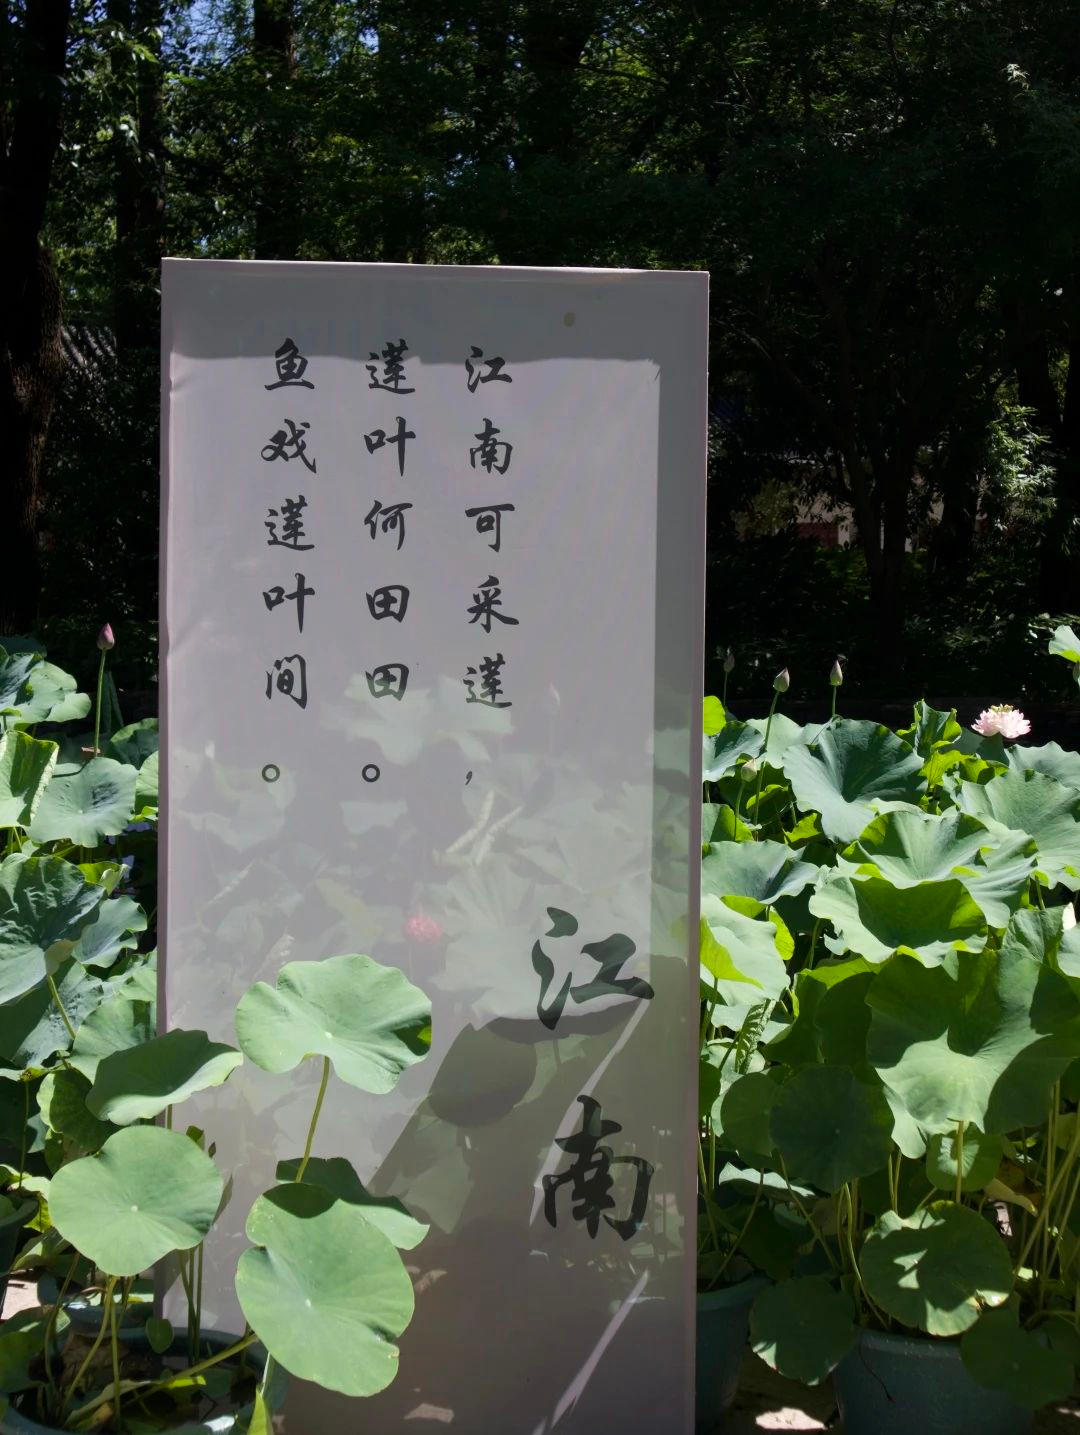 江南可采莲，
莲叶何田田。
鱼戏莲叶间。
江南